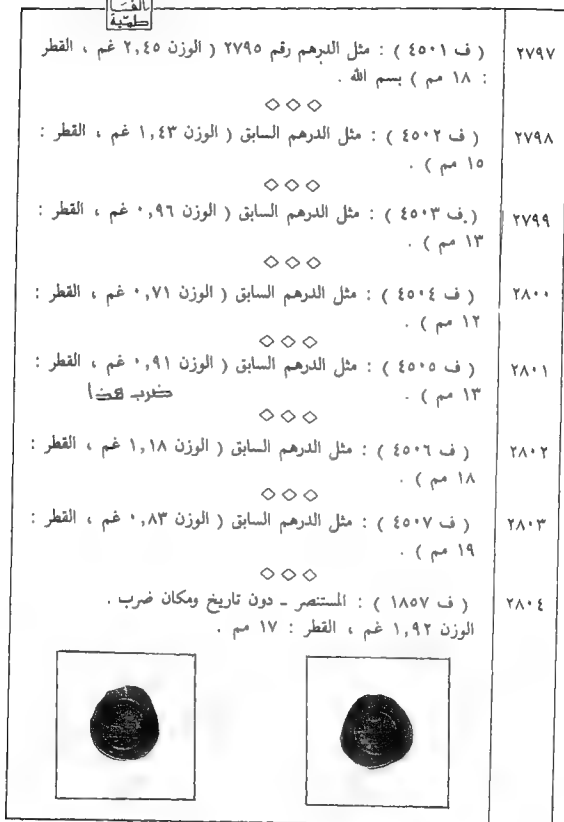 الفـا
طميّة
٢٧٩٧ ( ف ٤٥٠١ ) : مثل الدرهم رقم ٢٧٩٥ ( الوزن ٢,٤٥ غم ، القطر
: ١٨ مم ) بسم الله .
٢٧٩٨ ( ف ٤٥٠٢ ) : مثل الدرهم السابق ( الوزن ١,٤٣ غم ، القطر :
١٥ مم ) .
٢٧٩٩ ( ف ٤٥٠٣ ) : مثل الدرهم السابق ( الوزن ٠,٩٦ غم ، القطر :
١٣ مم ) .
٢٨٠٠ ( ف ٤٥٠٤ ) : مثل الدرهم السابق ( الوزن ٠,٧١ غم ، القطر :
١٢ مم ) .
٢٨٠١ ( ف ٤٥٠٥ ) : مثل الدرهم السابق ( الوزن ٠,٩١ غم ، القطر :
١٣ مم ) . ضرب هذا
٢٨٠٢ ( ف ٤٥٠٦ ) : مثل الدرهم السابق ( الوزن ١,١٨ غم ، القطر :
١٨ مم ) .
٢٨٠٣ ( ف ٤٥٠٧ ) : مثل الدرهم السابق ( الوزن ٠,٨٣ غم ، القطر :
١٩ مم ) .
٢٨٠٤ ( ف ١٨٥٧ ) : المستنصر ـ دون تاريخ ومكان ضرب .
الوزن ١,٩٢ غم ، القطر : ١٧ مم .